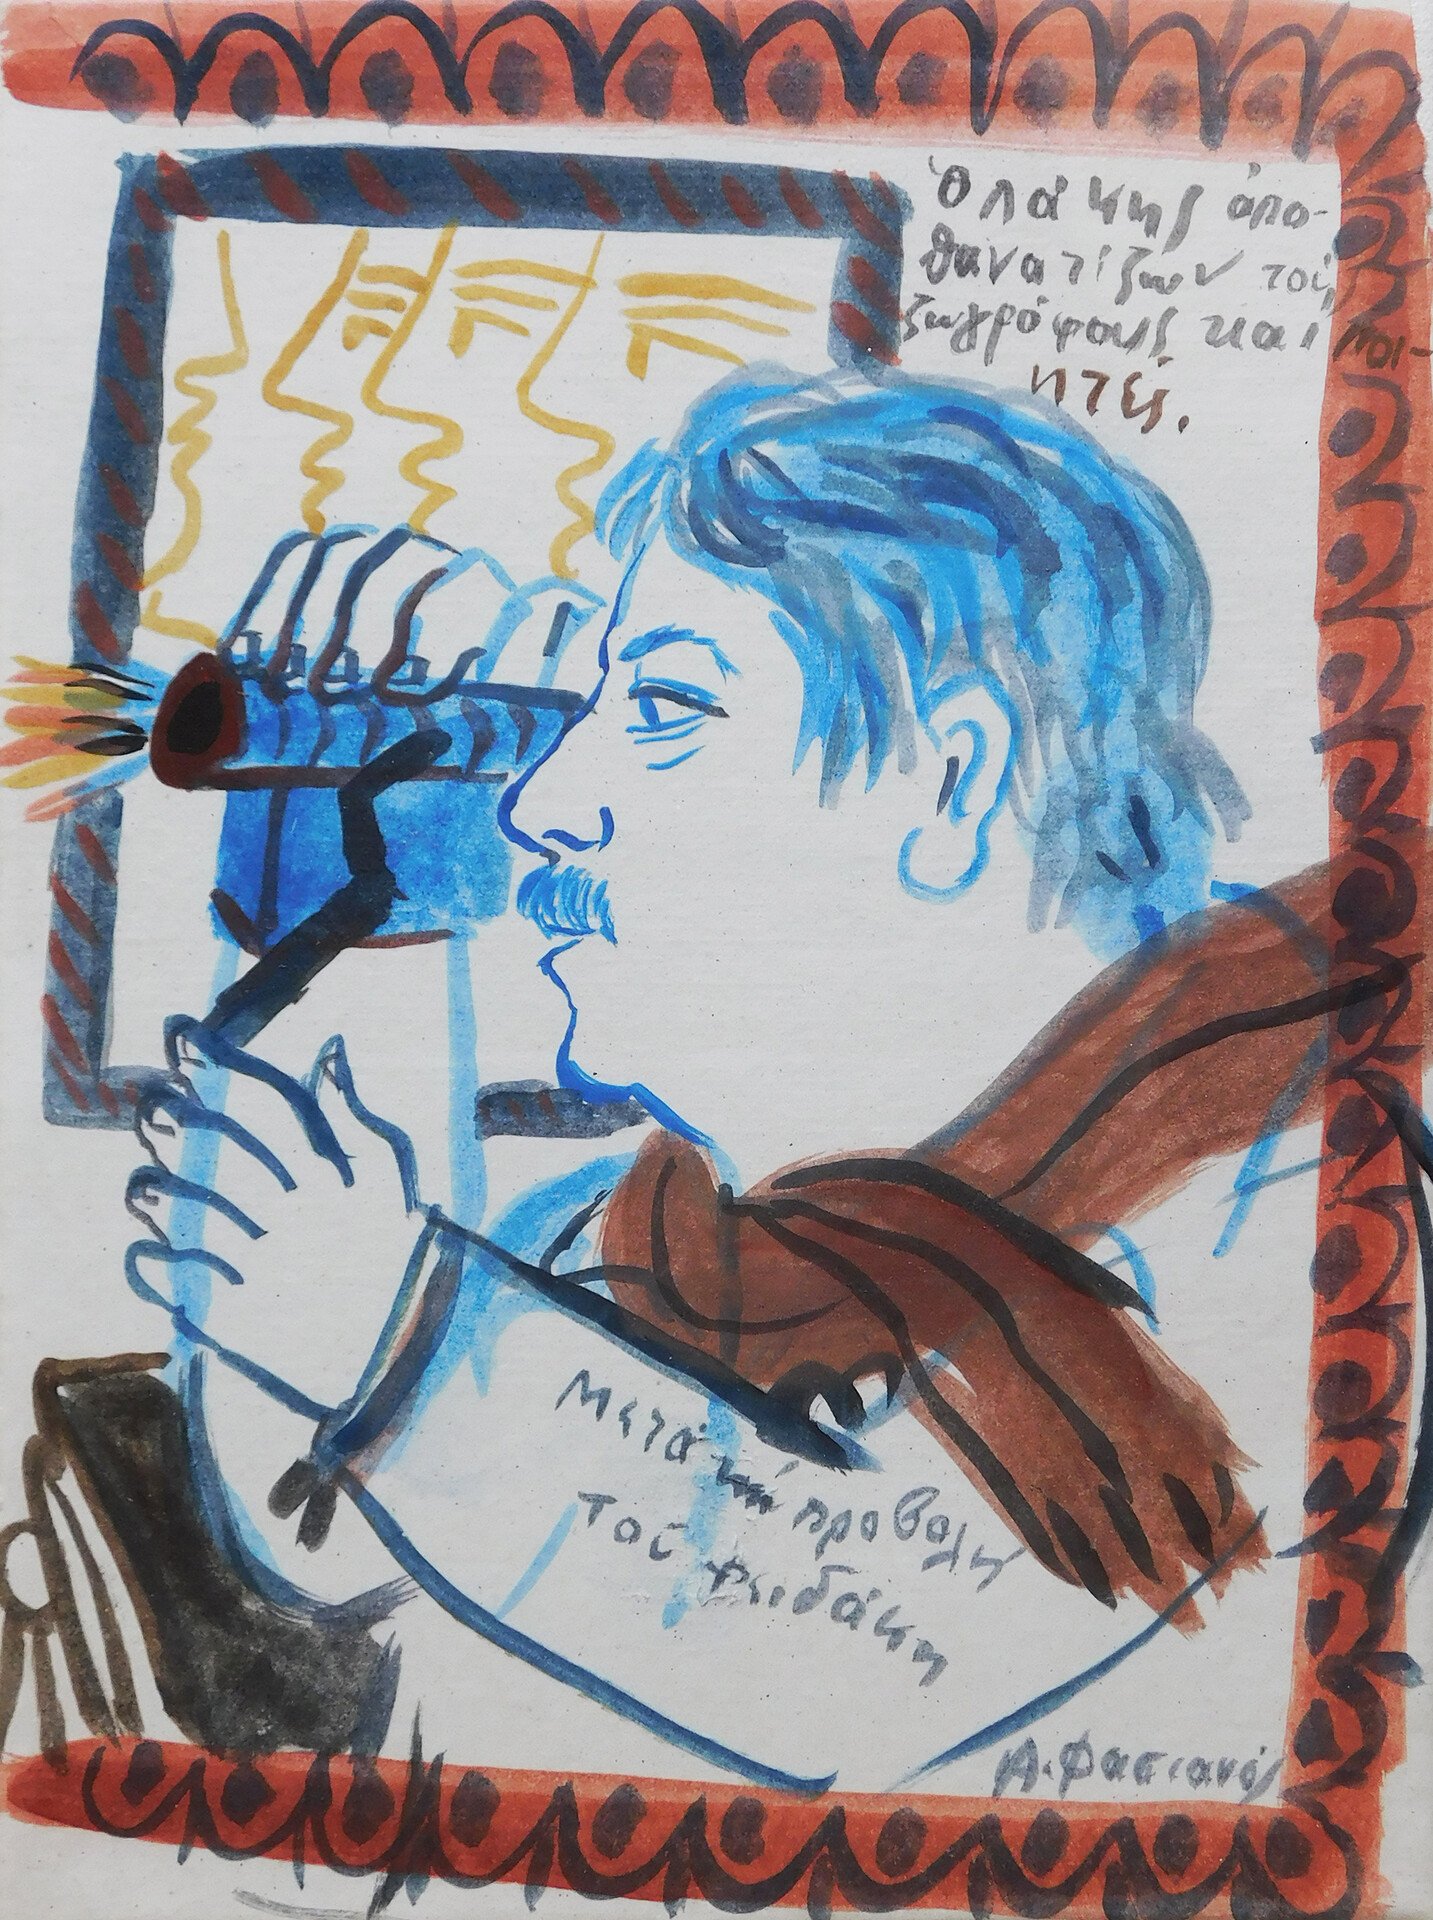 ὁ Λάκης ἀπο-
θανατίζων τούς
ζωγράφους και ποι-
ητές.
Μετά τή προβολή
τοῦ Φειδάκη
Α. Φασιανός